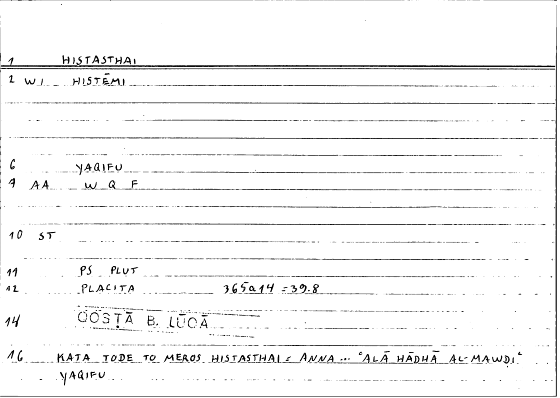 1 HISTASTHAI
2 WI HISTĒMI
6 YAQIFU
9 AA W Q F
10 ST
11 PS PLUT
12 PLACITA 365a14 = 39.8
14 QOSṬĀ B. LŪQĀ
16 KATA TODE TO MEROS HISTASTHAI = ANNA ... ʿALĀ HĀDHĀ AL-MAWḌIʿ
YAQIFU